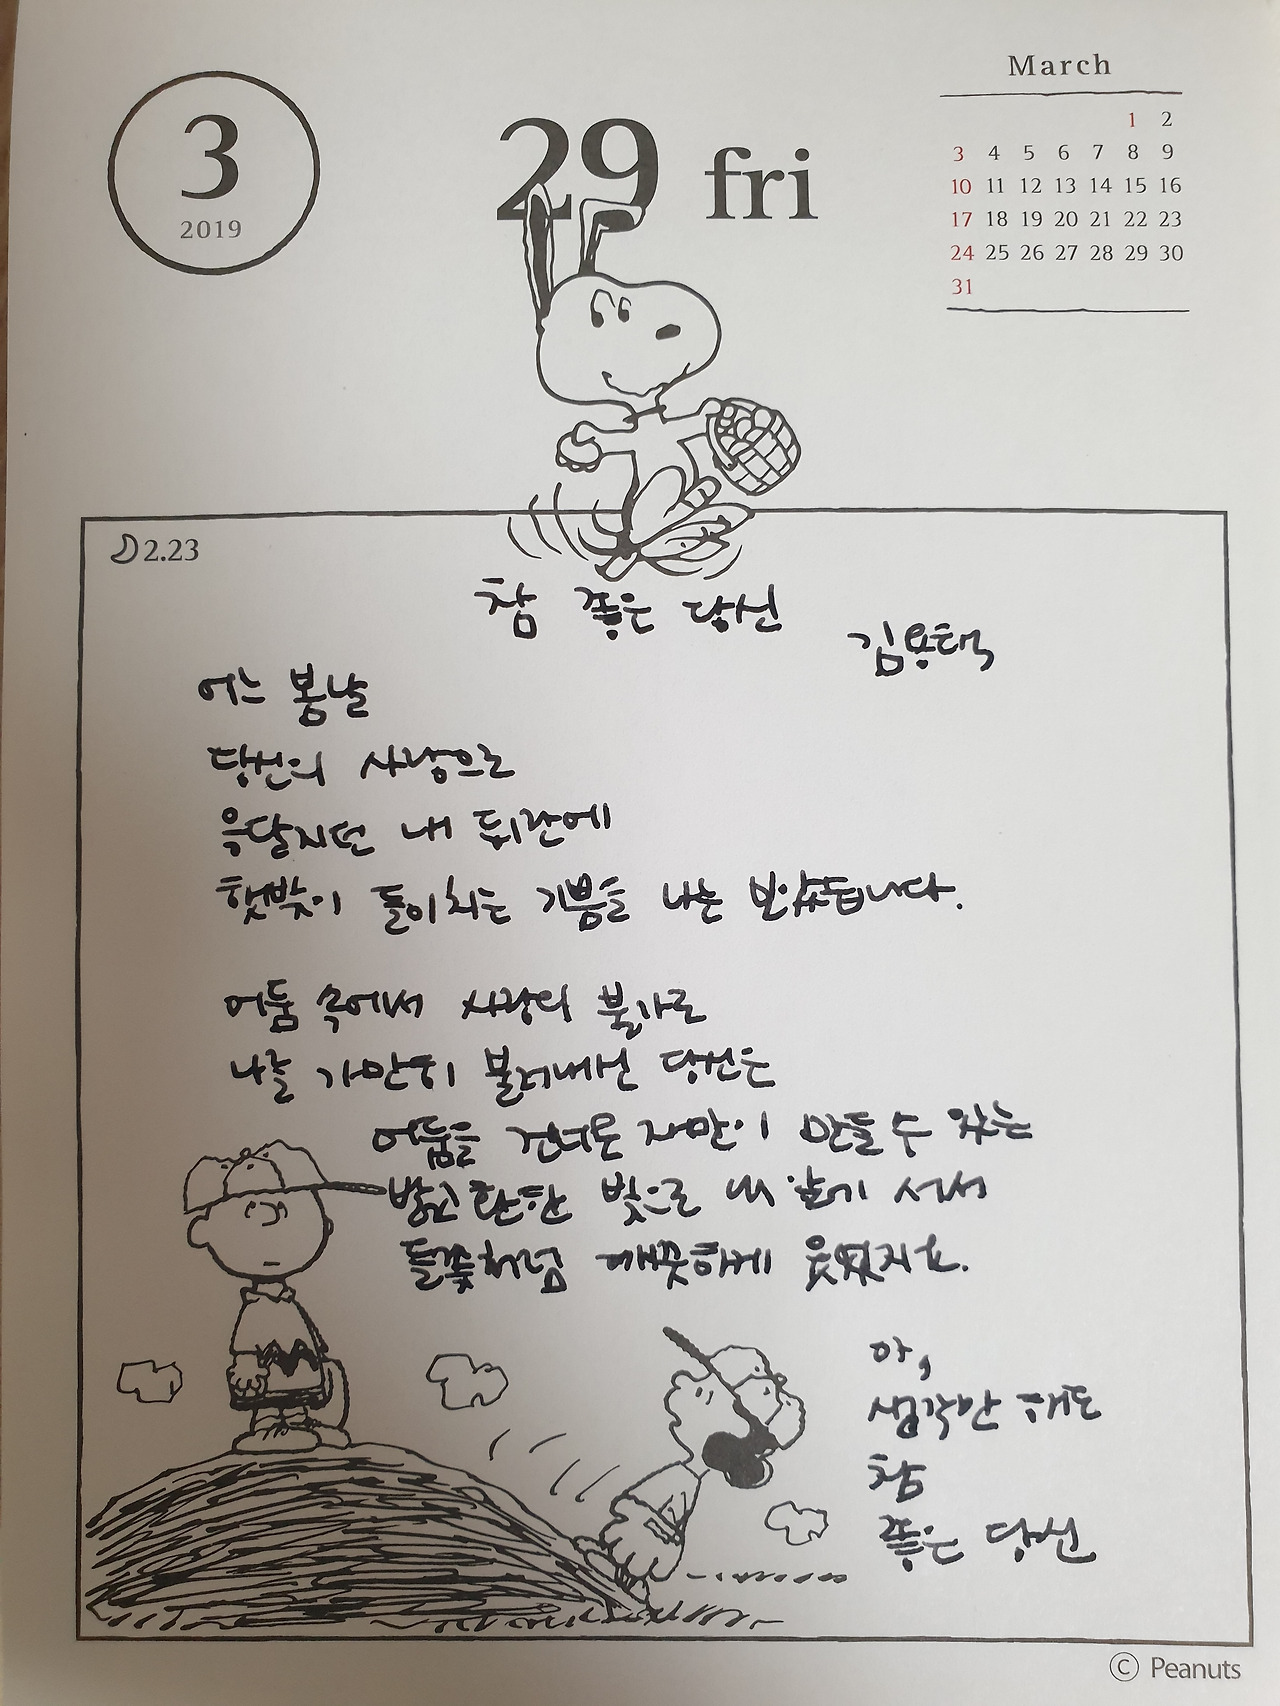 March
3
2019
29 fri
1 2
3 4 5 6 7 8 9
10 11 12 13 14 15 16
17 18 19 20 21 22 23
24 25 26 27 28 29 30
31
2.23
참 좋은 당신
김용택
어느 봄날
당신의 사랑으로
응달지던 내 뒤란에
햇빛이 들이치는 기쁨을 나는 보았습니다.
어둠 속에서 사랑의 불가로
나를 가만히 불러내신 당신은
어둠을 건너온 자만이 만들 수 있는
밝고 환한 빛으로 내 앞에 서서
들꽃처럼 깨끗하게 웃었지요.
아,
생각만 해도
참
좋은 당신
© Peanuts